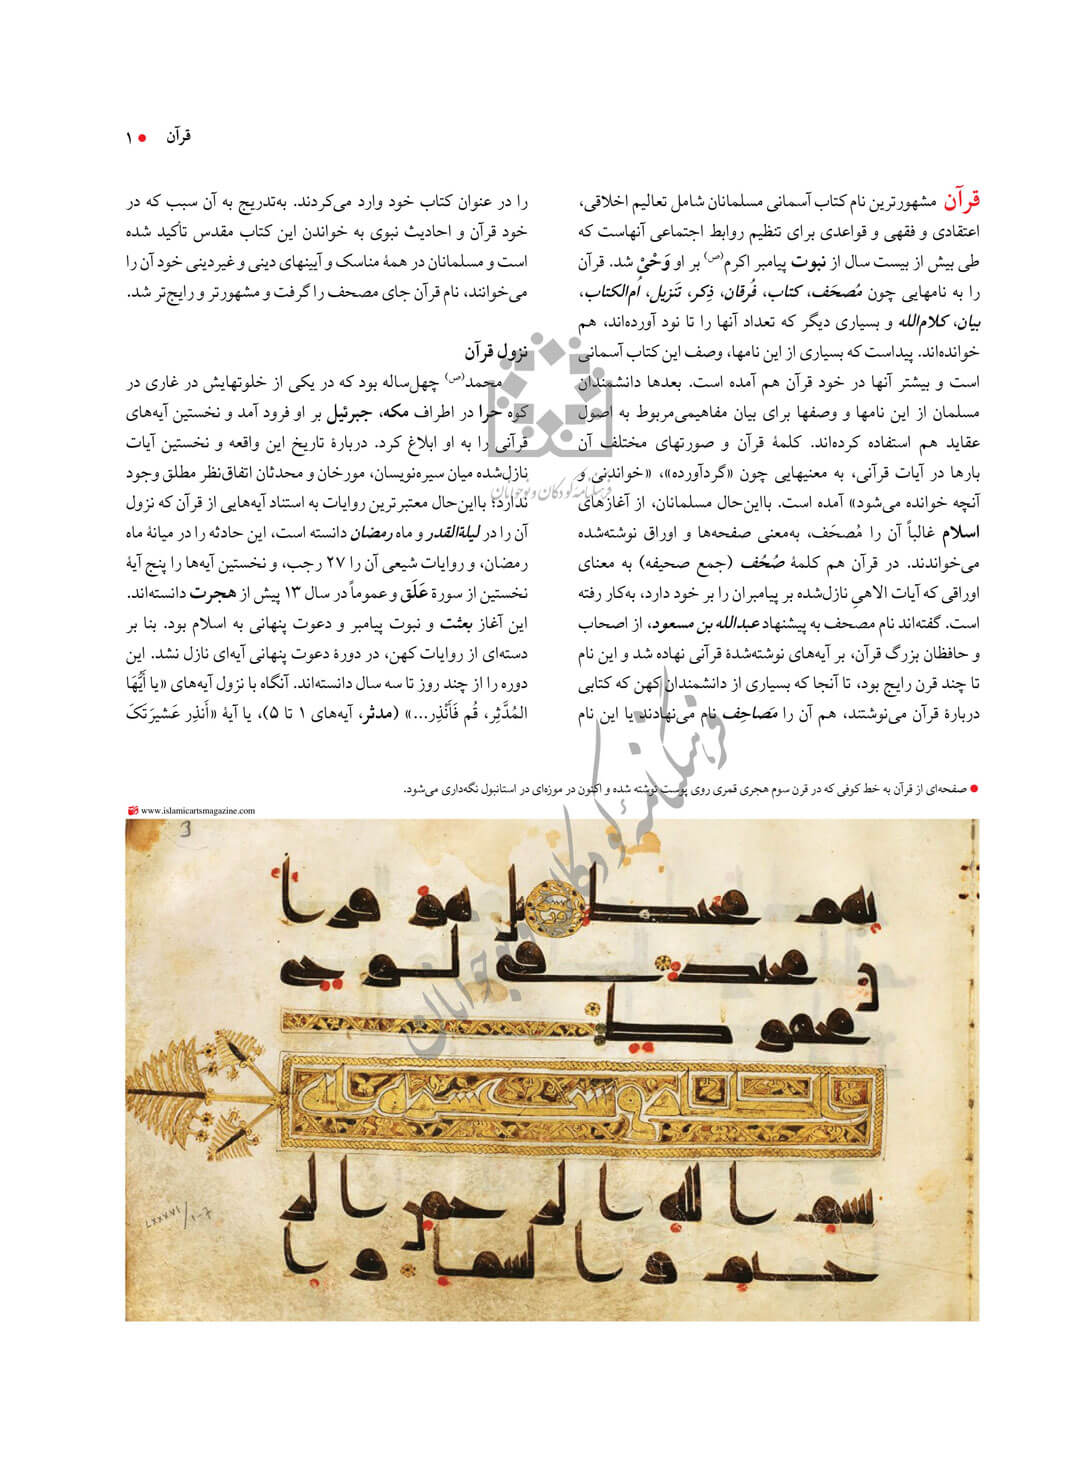 قرآن ● ۱
قرآن مشهورترین نام کتاب آسمانی مسلمانان شامل تعالیم اخلاقی،
اعتقادی و فقهی و قواعدی برای تنظیم روابط اجتماعی آنهاست که
طی بیش از بیست سال از نبوت پیامبر اکرم(ص) بر او وَحْیْ شد. قرآن
را به نامهایی چون مُصحَف، کتاب، فُرقان، ذِکر، تَنزیل، اُم‌الکتاب،
بیان، کلام‌الله و بسیاری دیگر که تعداد آنها را تا نود آورده‌اند، هم
خوانده‌اند. پیداست که بسیاری از این نامها، وصف این کتاب آسمانی
است و بیشتر آنها در خود قرآن هم آمده است. بعدها دانشمندان
مسلمان از این نامها و وصفها برای بیان مفاهیمی‌مربوط به اصول
عقاید هم استفاده کرده‌اند. کلمهٔ قرآن و صورتهای مختلف آن
بارها در آیات قرآنی، به معنیهایی چون «گردآورده»، «خواندنی و
آنچه خوانده می‌شود» آمده است. بااین‌حال مسلمانان، از آغازهای
اسلام غالباً آن را مُصحَف، به‌معنی صفحه‌ها و اوراق نوشته‌شده
می‌خواندند. در قرآن هم کلمهٔ صُحُف (جمع صحیفه) به معنای
اوراقی که آیات الاهیِ نازل‌شده بر پیامبران را بر خود دارد، به‌کار رفته
است. گفته‌اند نام مصحف به پیشنهاد عبدالله بن مسعود، از اصحاب
و حافظان بزرگ قرآن، بر آیه‌های نوشته‌شدهٔ قرآنی نهاده شد و این نام
تا چند قرن رایج بود، تا آنجا که بسیاری از دانشمندان کهن که کتابی
دربارهٔ قرآن می‌نوشتند، هم آن را مَصَاحِف نام می‌نهادند یا این نام
را در عنوان کتاب خود وارد می‌کردند. به‌تدریج به آن سبب که در
خود قرآن و احادیث نبوی به خواندن این کتاب مقدس تأکید شده
است و مسلمانان در همهٔ مناسک و آیینهای دینی و غیردینی خود آن را
می‌خوانند، نام قرآن جای مصحف را گرفت و مشهورتر و رایج‌تر شد.
نزول قرآن
محمد(ص) چهل‌ساله بود که در یکی از خلوتهایش در غاری در
کوه حرا در اطراف مکه، جبرئیل بر او فرود آمد و نخستین آیه‌های
قرآنی را به او ابلاغ کرد. دربارهٔ تاریخ این واقعه و نخستین آیات
نازل‌شده میان سیره‌نویسان، مورخان و محدثان اتفاق‌نظر مطلق وجود
ندارد؛ بااین‌حال معتبرترین روایات به استناد آیه‌هایی از قرآن که نزول
آن را در لیلةالقدر و ماه رمضان دانسته است، این حادثه را در میانهٔ ماه
رمضان، و روایات شیعی آن را ۲۷ رجب، و نخستین آیه‌ها را پنج آیهٔ
نخستین از سورهٔ عَلَق و عموماً در سال ۱۳ پیش از هجرت دانسته‌اند.
این آغاز بعثت و نبوت پیامبر و دعوت پنهانی به اسلام بود. بنا بر
دسته‌ای از روایات کهن، در دورهٔ دعوت پنهانی آیه‌ای نازل نشد. این
دوره را از چند روز تا سه سال دانسته‌اند. آنگاه با نزول آیه‌های «یا أَیُّهَا
المُدَّثِر، قُم فَأَنْذِر...» (مدثر، آیه‌های ۱ تا ۵)، یا آیهٔ «أَنذِر عَشیرَتَکَ
● صفحه‌ای از قرآن به خط کوفی که در قرن سوم هجری قمری روی پوست نوشته شده و اکنون در موزه‌ای در استانبول نگه‌داری می‌شود.
www.islamicartsmagazine.com
فرهنگنامهٔ کودکان و نوجوانان
فرهنگنامهٔ کودکان و نوجوانان
3
LXXXVI / 1-7